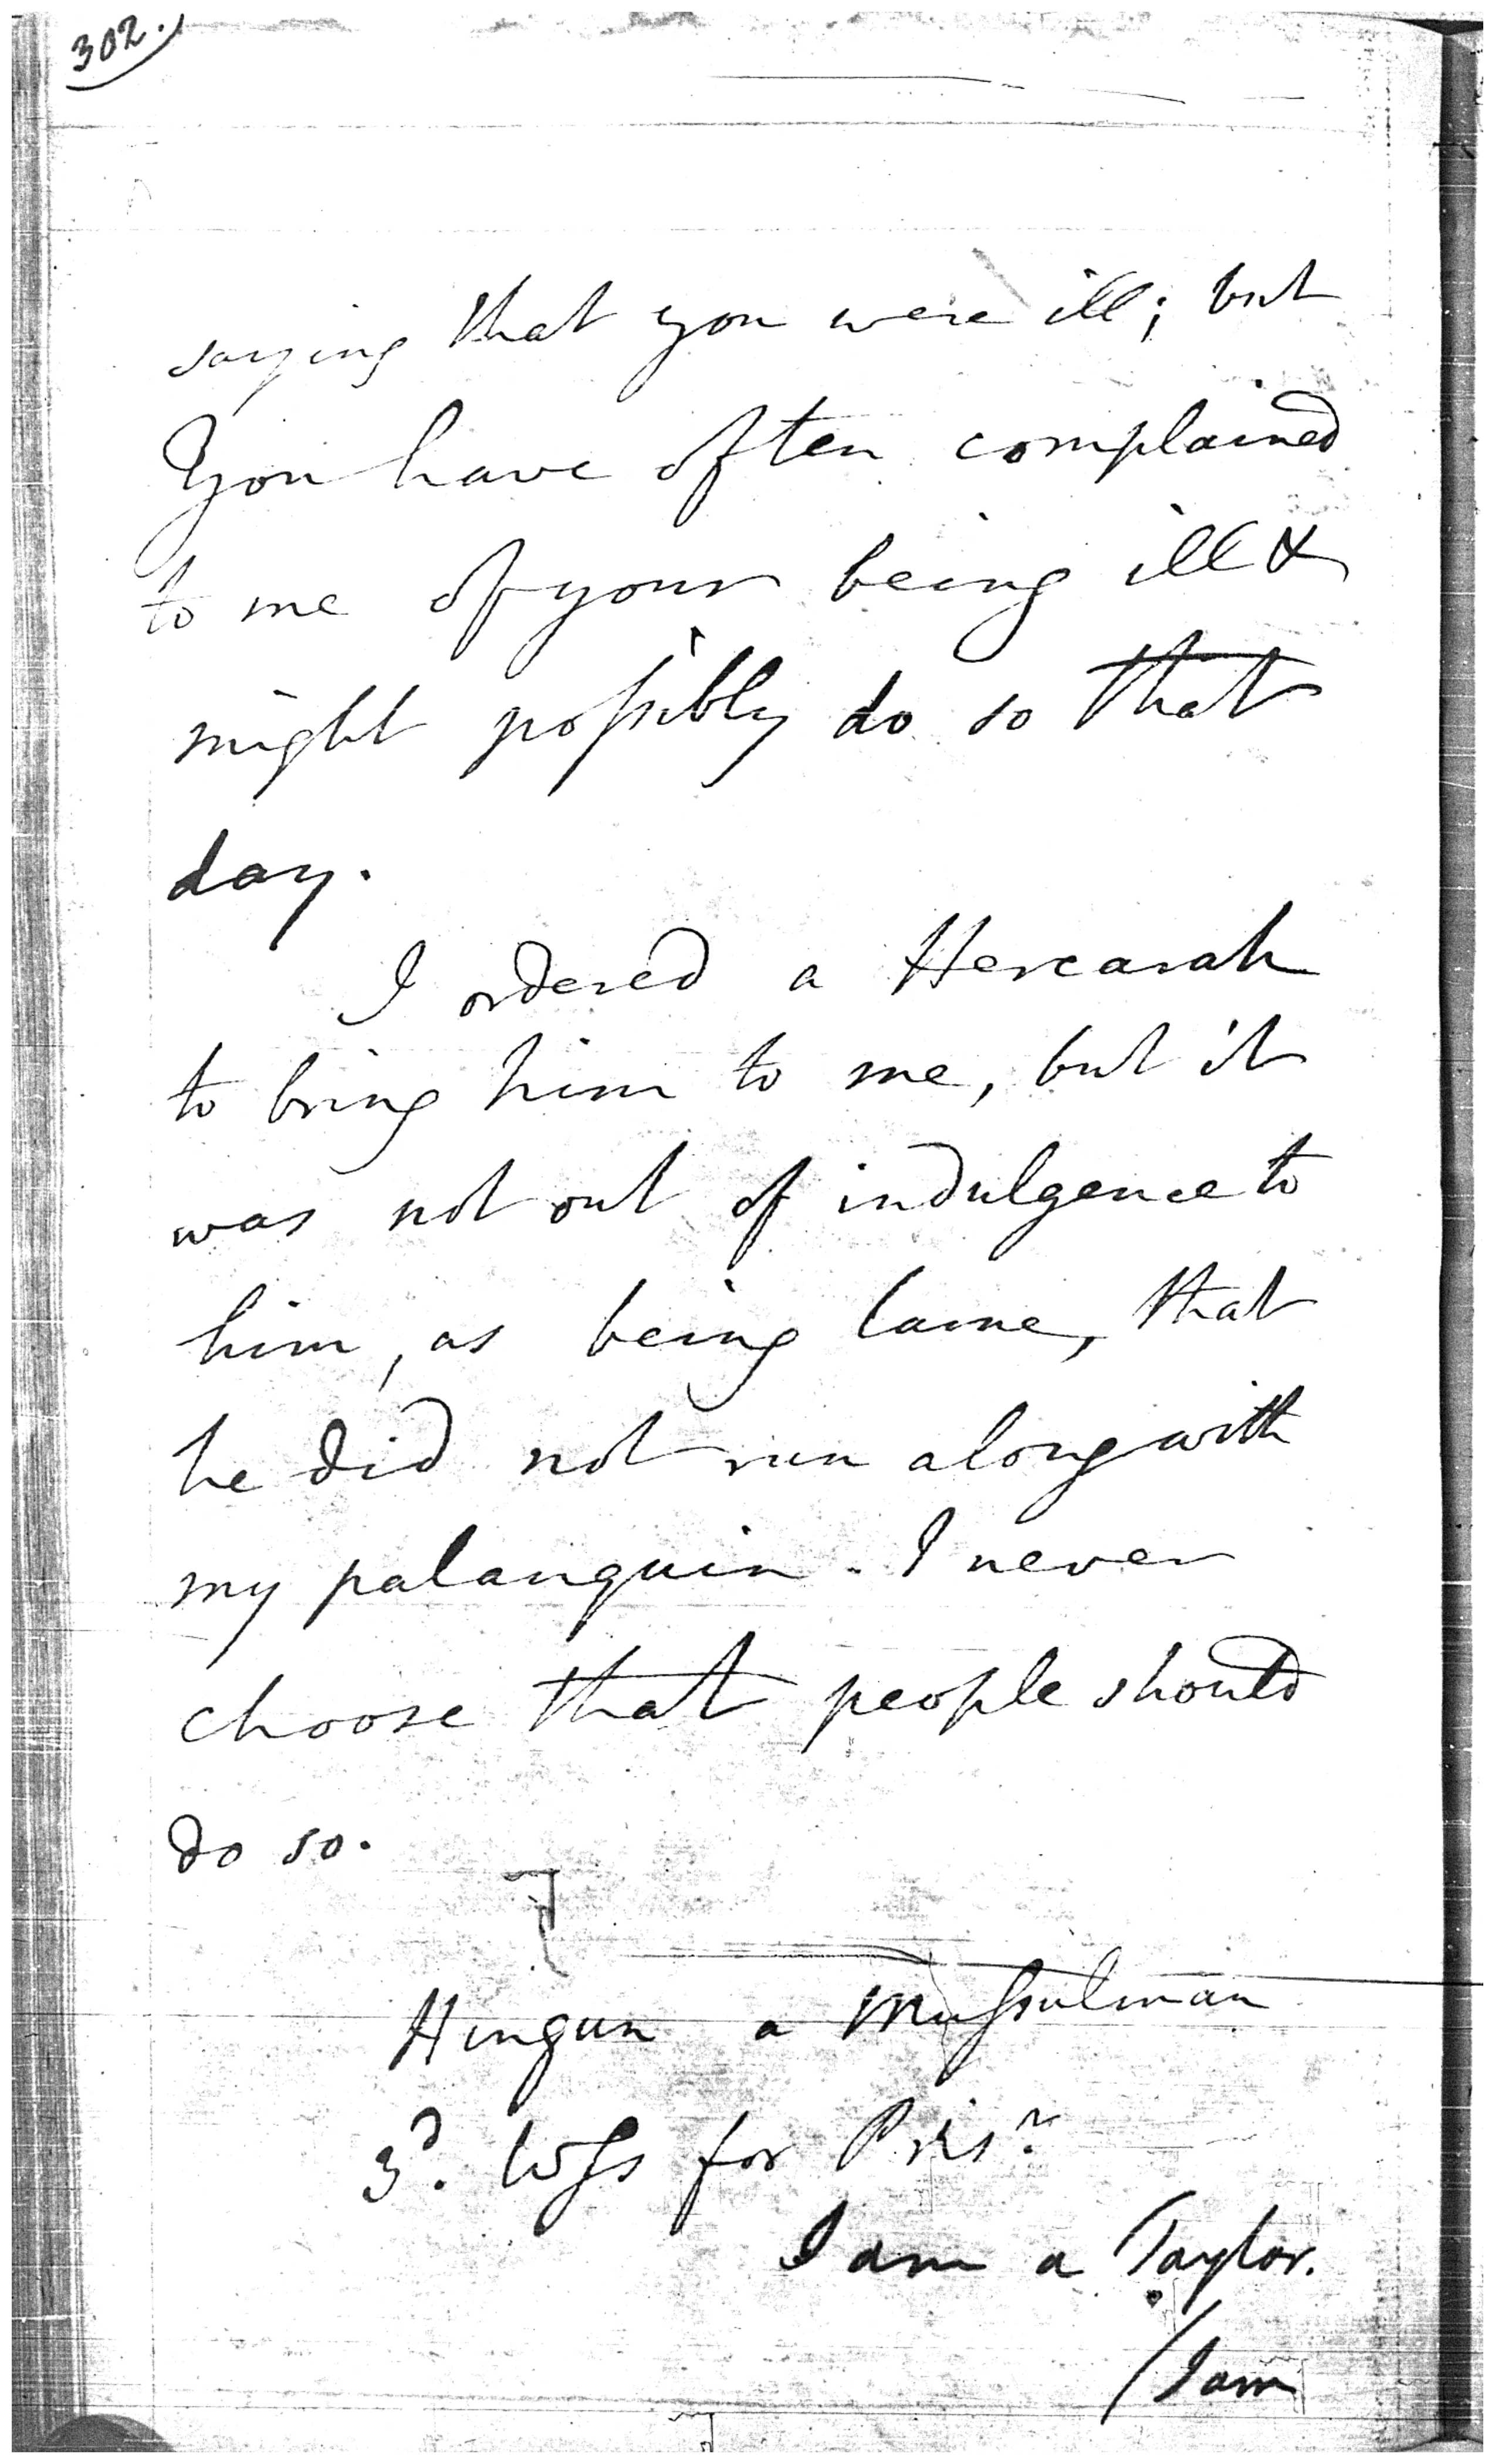 302.
saying that you were ill; but
You have often complained
to me of your being ill &
might possibly do so that
day.
I ordered a Hercarah
to bring him to me, but it
was not out of indulgence to
him, as being lame, that
he did not run along with
my palanquin. I never
choose that people should
do so.
Hingun a Mussulman
3d. Wss for Prisr.
I am a Taylor.
/I am